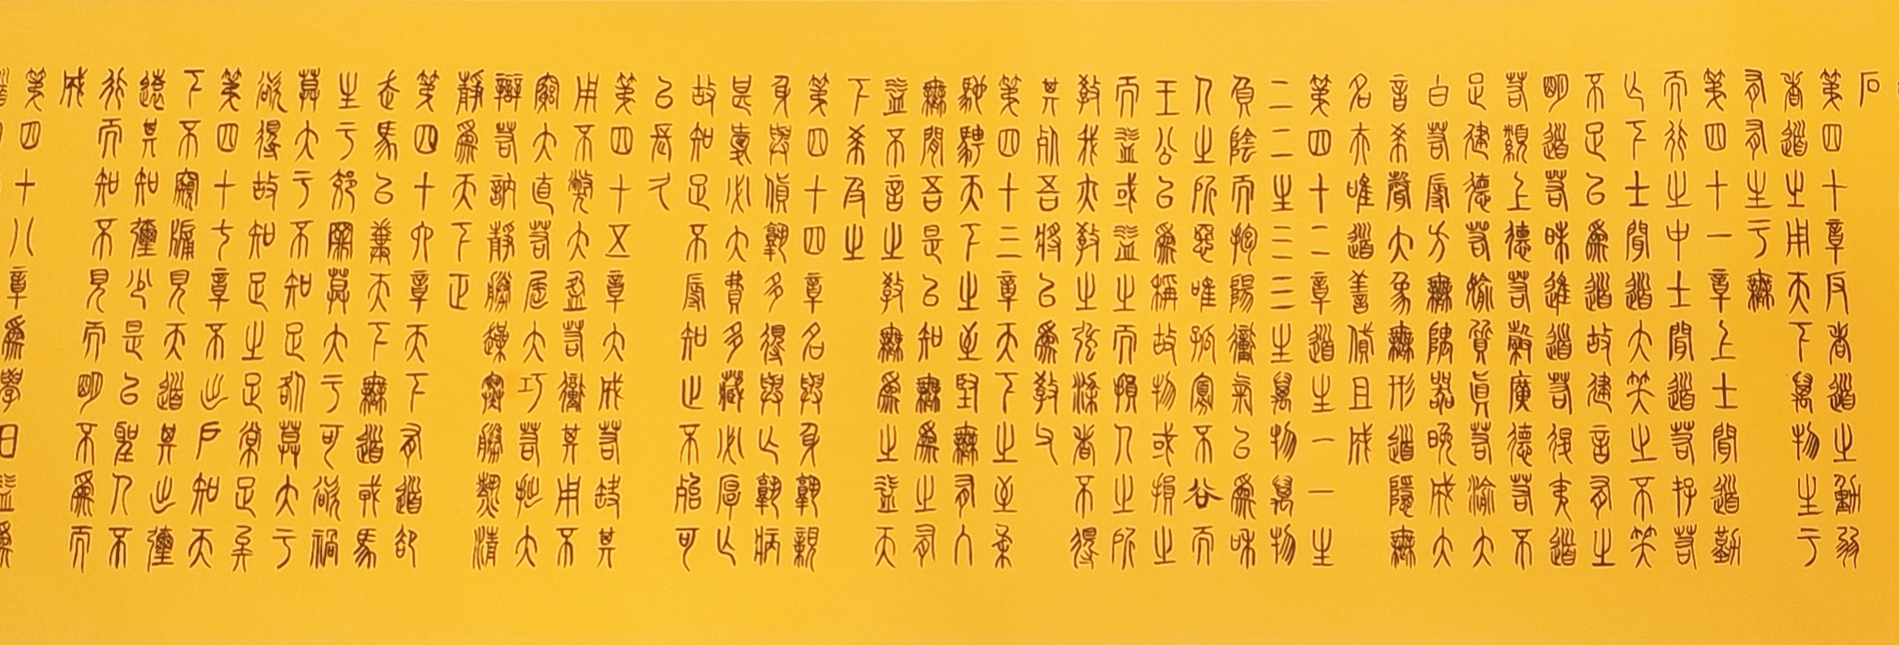 石
第四十章反者道之動弱
者道之用天下萬物生于
有有生于無
第四十一章上士聞道勤
而行之中士聞道若存若
亡下士聞道大笑之不笑
不足以為道故建言有之
明道若昧進道若退夷道
若纇上德若穀廣德若不
足建德若偷質真若渝大
白若辱方無隅器晚成大
音希聲大象無形道隱無
名夫唯道善貸且成
第四十二章道生一一生
二二生三三生萬物萬物
負陰而抱陽衝氣以為和
人之所惡唯孤寡不谷而
王公以為稱故物或損之
而益或益之而損人之所
教我亦教之強梁者不得
其死吾將以為教父
第四十三章天下之至柔
馳騁天下之至堅無有入
無間吾是以知無為之有
益不言之教無為之益天
下希及之
第四十四章名與身孰親
身與貨孰多得與亡孰病
甚愛必大費多藏必厚亡
故知足不辱知止不殆可
以長久
第四十五章大成若缺其
用不弊大盈若衝其用不
窮大直若屈大巧若拙大
辯若訥靜勝躁寒勝熱清
靜為天下正
第四十六章天下有道卻
走馬以糞天下無道戎馬
生于郊罪莫大于可欲禍
莫大于不知足咎莫大于
欲得故知足之足常足矣
第四十七章不出戶知天
下不窺牖見天道其出彌
遠其知彌少是以聖人不
行而知不見而明不為而
成
第四十八章為學日益為